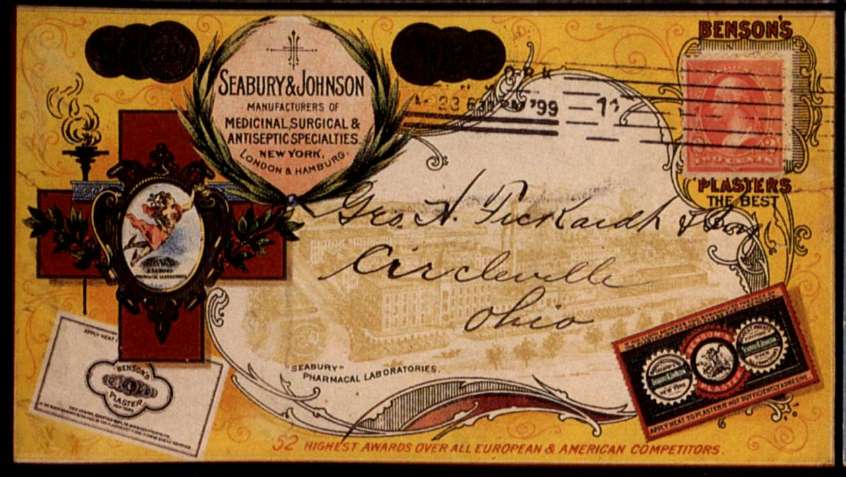 BENSON'S
SEABURY & JOHNSON
MANUFACTURERS OF
MEDICINAL, SURGICAL &
ANTISEPTIC SPECIALTIES.
NEW YORK.
LONDON & HAMBURG.
23 '99
TWO CENTS
PLASTERS
THE BEST
Geo. H. Fickardt &
Circleville
Ohio
"SEABURY"
PHARMACAL LABORATORIES.
BENSON'S
PLASTER
52 HIGHEST AWARDS OVER ALL EUROPEAN & AMERICAN COMPETITORS.